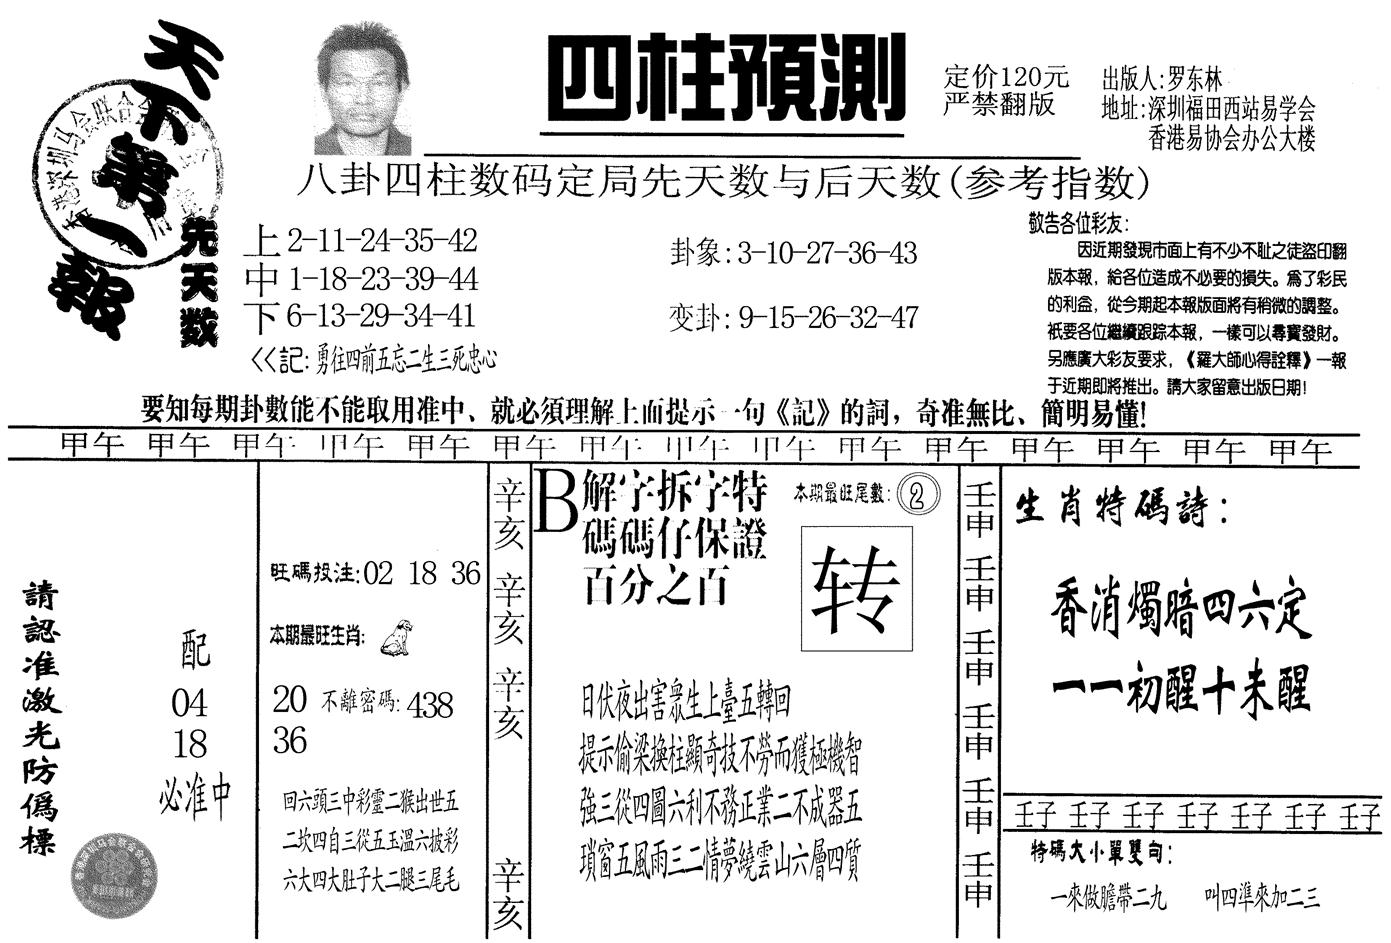 天下第一報
先天数
四柱預測
定价120元
严禁翻版
出版人:罗东林
地址:深圳福田西站易学会
香港易协会办公大楼
八卦四柱数码定局先天数与后天数(参考指数)
上 2-11-24-35-42
中 1-18-23-39-44
下 6-13-29-34-41
<<記:勇往四前五忘二生三死忠心
卦象:3-10-27-36-43
变卦:9-15-26-32-47
敬告各位彩友:
因近期發現市面上有不少不耻之徒盜印翻
版本報，給各位造成不必要的損失。爲了彩民
的利益，從今期起本報版面將有稍微的調整。
衹要各位繼續跟踪本報，一樣可以尋寶發財。
另應廣大彩友要求，《羅大師心得詮釋》一報
于近期即將推出。請大家留意出版日期!
要知每期卦數能不能取用准中、就必須理解上面提示一句《記》的詞，奇准無比、簡明易懂!
甲午 甲午 甲午 甲午 甲午 甲午 甲午 甲午 甲午 甲午 甲午 甲午 甲午 甲午 甲午
請認准激光防僞標
配
04
18
必准中
旺碼投注:02 18 36
本期最旺生肖:
20 不離密碼:438
36
回六頭三中彩靈二猴出世五
二坎四自三從五玉溫六披彩
六大四大肚子大二腿三尾毛
辛亥 辛亥 辛亥 辛亥
B 解字拆字特
碼碼仔保證
百分之百
本期最旺尾數:2
转
日伏夜出害衆生上臺五轉回
提示偷梁換柱顯奇技不勞而獲極機智
強三從四圖六利不務正業二不成器五
瑣窗五風雨三二情夢繞雲山六層四質
壬申 壬申 壬申 壬申 壬申 壬申
生肖特碼詩:
香消燭暗四六定
一一初醒十未醒
壬子 壬子 壬子 壬子 壬子 壬子 壬子
特碼大小單雙句:
一來做膽帶二九 叫四準來加二三